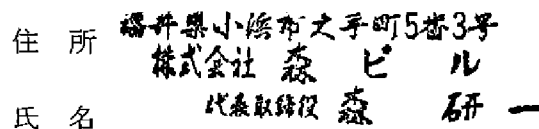 住所 福井県小浜市大手町5番3号
株式会社 森ビル
氏名 代表取締役 森 研一